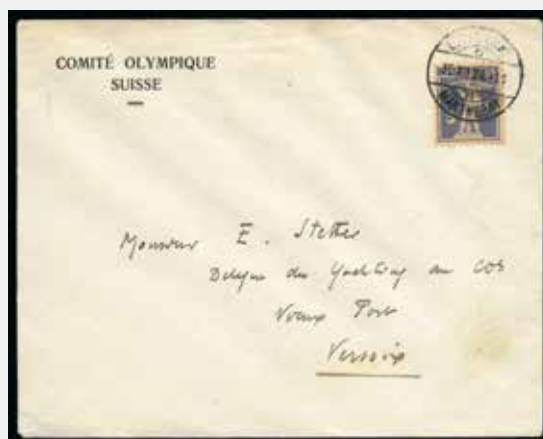 COMITÉ OLYMPIQUE
SUISSE
Monsieur E. Stetter
Délégué du Yachting au COS
Vieux Port
Versoix